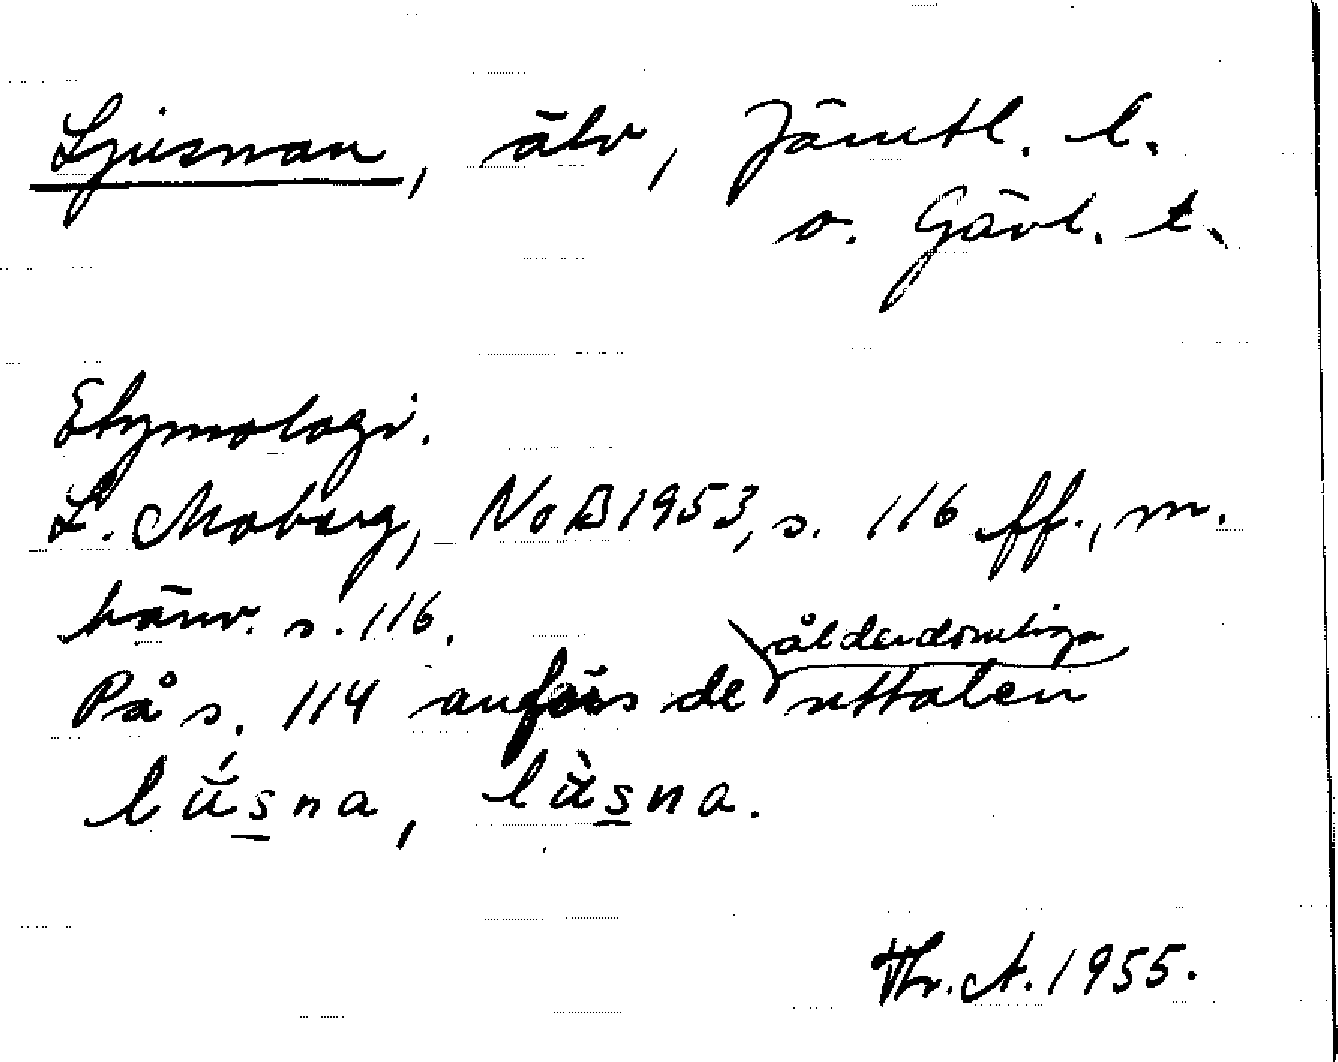 Ljusnan, älv, Jämtl. l.
o. Gävl. l.
Etymologi.
L. Moberg, NoB 1953, s. 116 ff., m.
hänv. s. 116.
På s. 114 anförs de ålderdomliga uttalen
lǘs̲na, lǜs̲na.
Th. A. 1955.